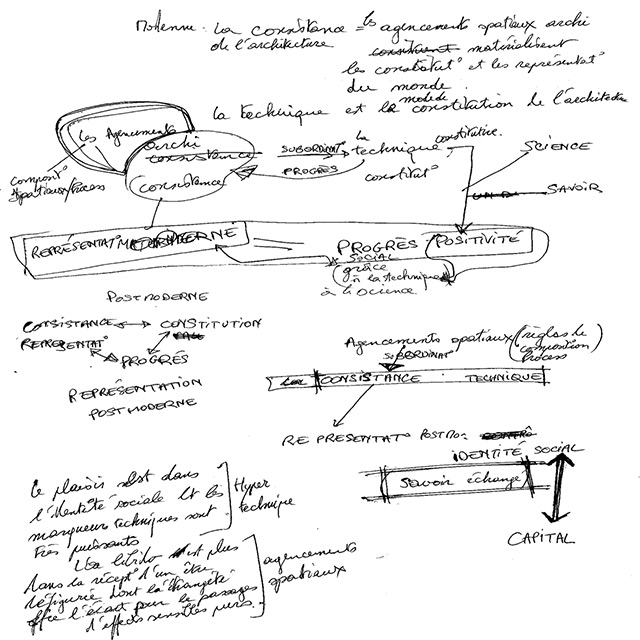 Moderne. La consistance = les agencements spatiaux archi
de l'architecture constituent matérialisent
les constitut° et les représentat°
du monde.
la technique est le mode de constitution de l'architecture
Les Agencements
archi
consistance
consistance
composit°
spatiaux/process
SUBORDINAT°
PROGRÈS
la
technique
constitutive.
constitut°
SCIENCE
SAVOIR
REPRÉSENTAT° MODERNE
PROGRÈS
SOCIAL
POSITIVITÉ
grâce
à la technique
à la science.
POSTMODERNE
CONSISTANCE CONSTITUTION
REPRESENTAT°
PROGRÈS
REPRÉSENTATION
POSTMODERNE
Agencements spatiaux (règles de
composition
Process
SUBORDINAT°
CONSISTANCE TECHNIQUE
REPRESENTAT° POSTMO:
IDENTITÉ SOCIAL
Savoir échangé
CAPITAL
Le plaisir est dans
l'identité sociale et les
marqueurs techniques sont
très puissants
Hyper
technique
La libido est plus
dans la récept° d'un état
défiguré dont la étrangeté
offre l'écart pour le passage
d'effets sensibles purs.
agencements
spatiaux